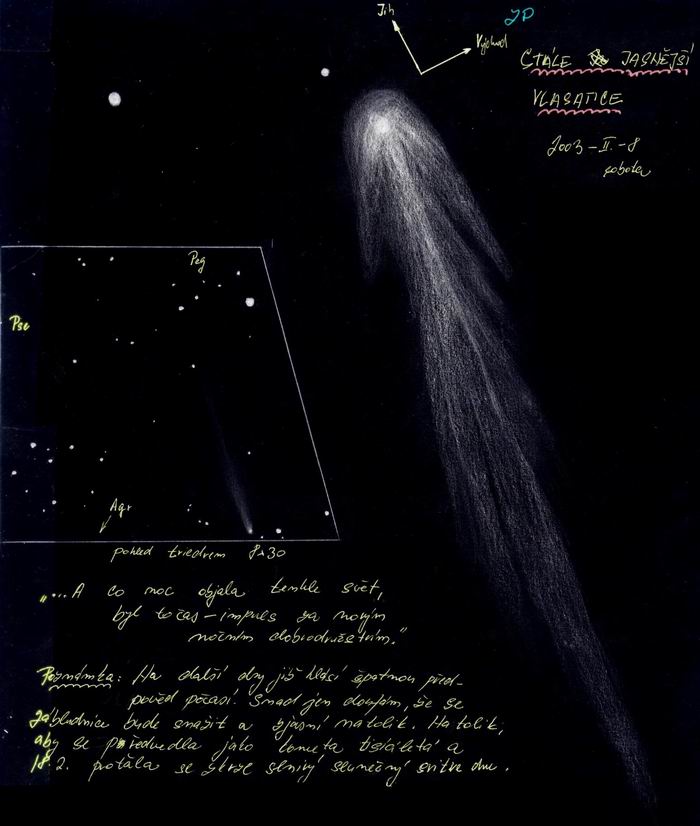 Jih
JD
Východ
STÁLE JASNĚJŠÍ
VLASATICE
2003-II.-8
sobota
Peg
Psc
Aqr
pohled triedrem 8x30
"...A co noc objala tenhle svět,
byl to čas-impuls za novým
nočním dobrodružstvím."
Poznámka: Na další dny již hlásí špatnou před-
pověď počasí! Snad jen doufám, že se
bude snažit a zjasní natolik. Natolik,
aby se předvedla jako kometa tisíciletá a
18.2. protála se skrze slunečný svit dne.